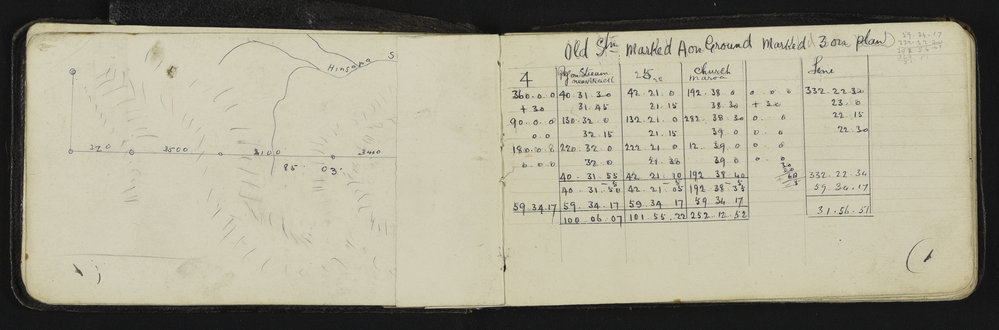 Hinsapa S
320 3500 3100 3400
85 03
Old Stn Marked A on Ground Marked 3 on plan
4 Peg on Stream near track 25 Church Maroa Line
360.0.0 40.31.30 42.21.0 192.38.0 0.0.0 332.22.30
+30 31.45 21.15 38.30 +30 23.0
90.0.0 130.32.0 132.21.0 282.38.30 0.0 22.15
0.0 32.15 21.15 39.0 0.0 22.30
180.0.0 220.32.0 222.21.0 12.39.0 0.0
0.0.0 32.0 21.30 39.0 0.0
40.31.55 42.21.10 192.38.40 332.22.34
-5 -5 -5
40.31.50 42.21.05 192.38.35 59.34.17
59.34.17 59.34.17 59.34.17 59.34.17
100.06.07 101.55.22 252.12.52 31.56.51